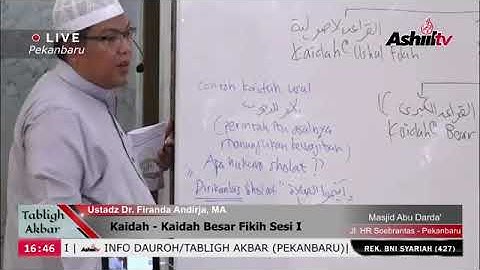 LIVE
Pekanbaru
Ashiil tv
القواعد الأصولية
Kaidah² Ushul Fiqh
contoh kaidah usul
(perintah itu asalnya
menunjukkan kewajiban)
Apa hukum sholat ??
"Dirikanlah sholat"
القواعد الكبرى
Kaidah² Besar
Tabligh
Akbar
Ustadz Dr. Firanda Andirja, MA
Kaidah - Kaidah Besar Fikih Sesi I
Masjid Abu Darda'
Jl. HR Soebrantas - Pekanbaru
16:46
INFO DAUROH/TABLIGH AKBAR (PEKANBARU)|
REK. BNI SYARIAH (427)